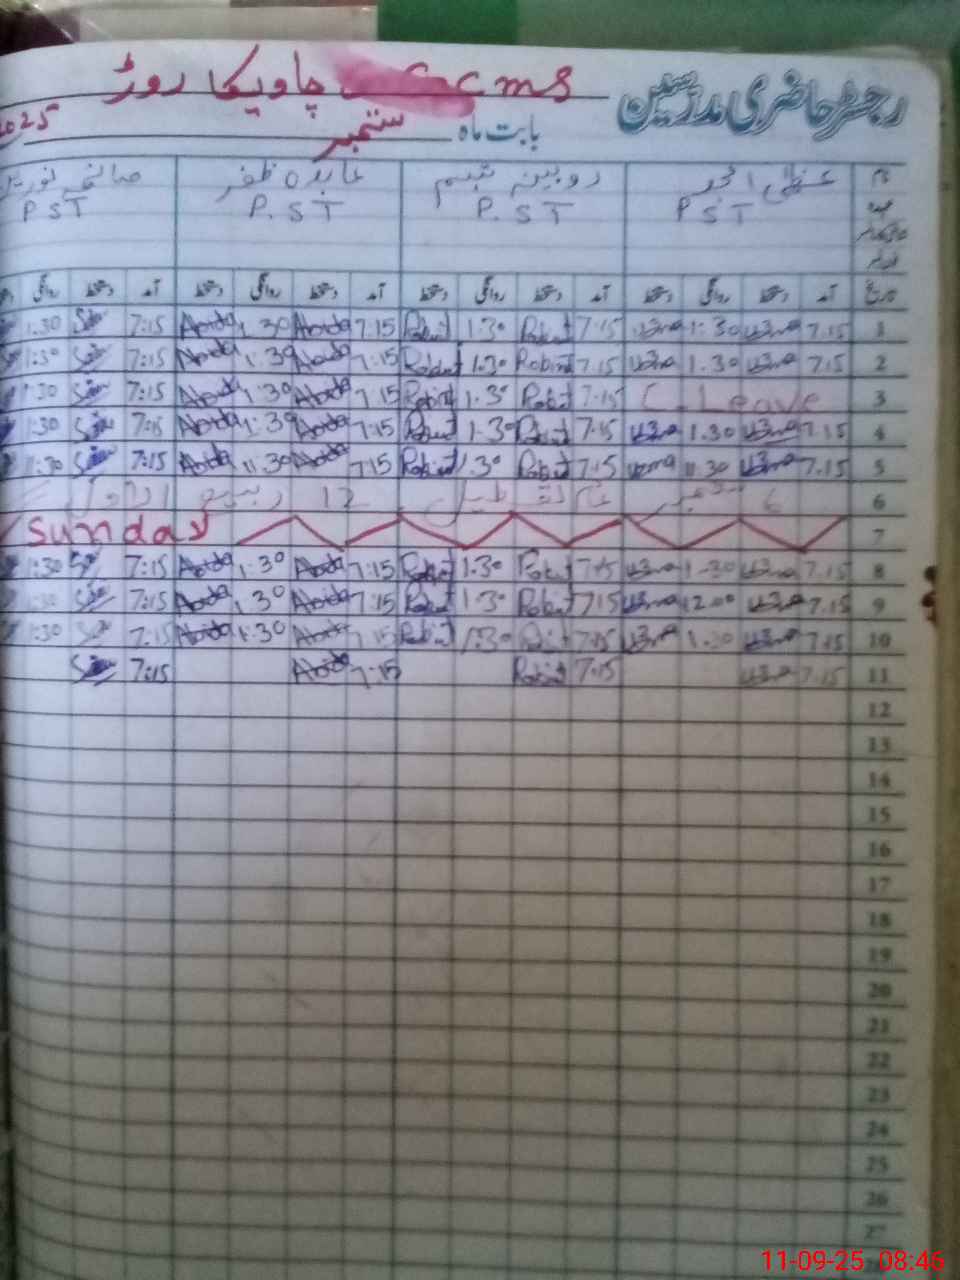 رجسٹر حاضری مدرسین
cms چاویکا روڑ
بابت ماہ ستمبر 2025
نام عظمیٰ روبینہ تبسم عابدہ ظفر صائمہ
عہدہ P S T P. S T P. S T P S T
تاریخ آمد دستخط روانگی دستخط آمد دستخط روانگی دستخط آمد دستخط روانگی دستخط آمد دستخط روانگی
1 7.15 uzma 1:30 uzma 7:15 Robina 1:30 Robina 7:15 Abida 1:30 Abida 7:15 1:30
2 7.15 uzma 1.30 uzma 7.15 Robina 1:30 Robina 7:15 Abida 1:30 Abida 7:15 1:30
3 C. Leave 7:15 Robina 1.30 Robina 7.15 Abida 1:30 Abida 7:15 1:30
4 7.15 uzma 1.30 uzma 7:15 Robina 1:30 Robina 7:15 Abida 1:30 Abida 7:15 1:30
5 7.15 uzma 1.30 uzma 7:15 Robina 1:30 Robina 7:15 Abida 1:30 Abida 7:15 1:30
6 6 ستمبر عام تعطیل 12 ربیع الاول
7 Sunday
8 7.15 uzma 1:30 uzma 7:15 Robina 1:30 Robina 7:15 Abida 1:30 Abida 7:15 1:30
9 7.15 uzma 12.00 uzma 7:15 Robina 1:30 Robina 7:15 Abida 1:30 Abida 7:15 1:30
10 7.15 uzma 1.30 uzma 7:15 Robina 1:30 Robina 7:15 Abida 1:30 Abida 7:15 1:30
11 7.15 uzma 7:15 Robina 7:15 Abida 7:15
12
13
14
15
16
17
18
19
20
21
22
23
24
25
26
27
28
11-09-25 08:46